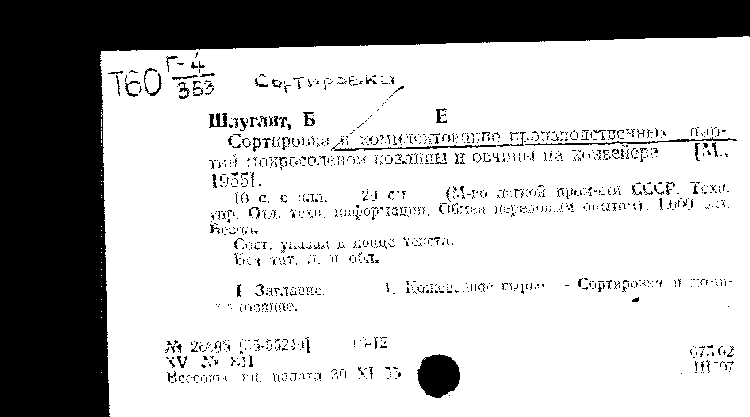 Т60 Г-4/353 Сортировка
Шлуглит, Б Е
Сортировка и комплектование производственных пар-
тий мокросоленой козлины и овчины на конвейере [М.,
1955].
16 с. с илл. 20 см (М-во легкой пром-сти СССР. Техн.
упр. Отд. техн. информации. Обмен передовым опытом). 1.000 экз.
Беспл.
Сост. указан в конце текста.
Без тит. л. и обл.
I Заглавие. 1. Кожевенное сырье - Сортировка и комп-
лектование.
№ [55-5521
XV № VII
Всесоюз. кн. палата 30 XI 55
675.02